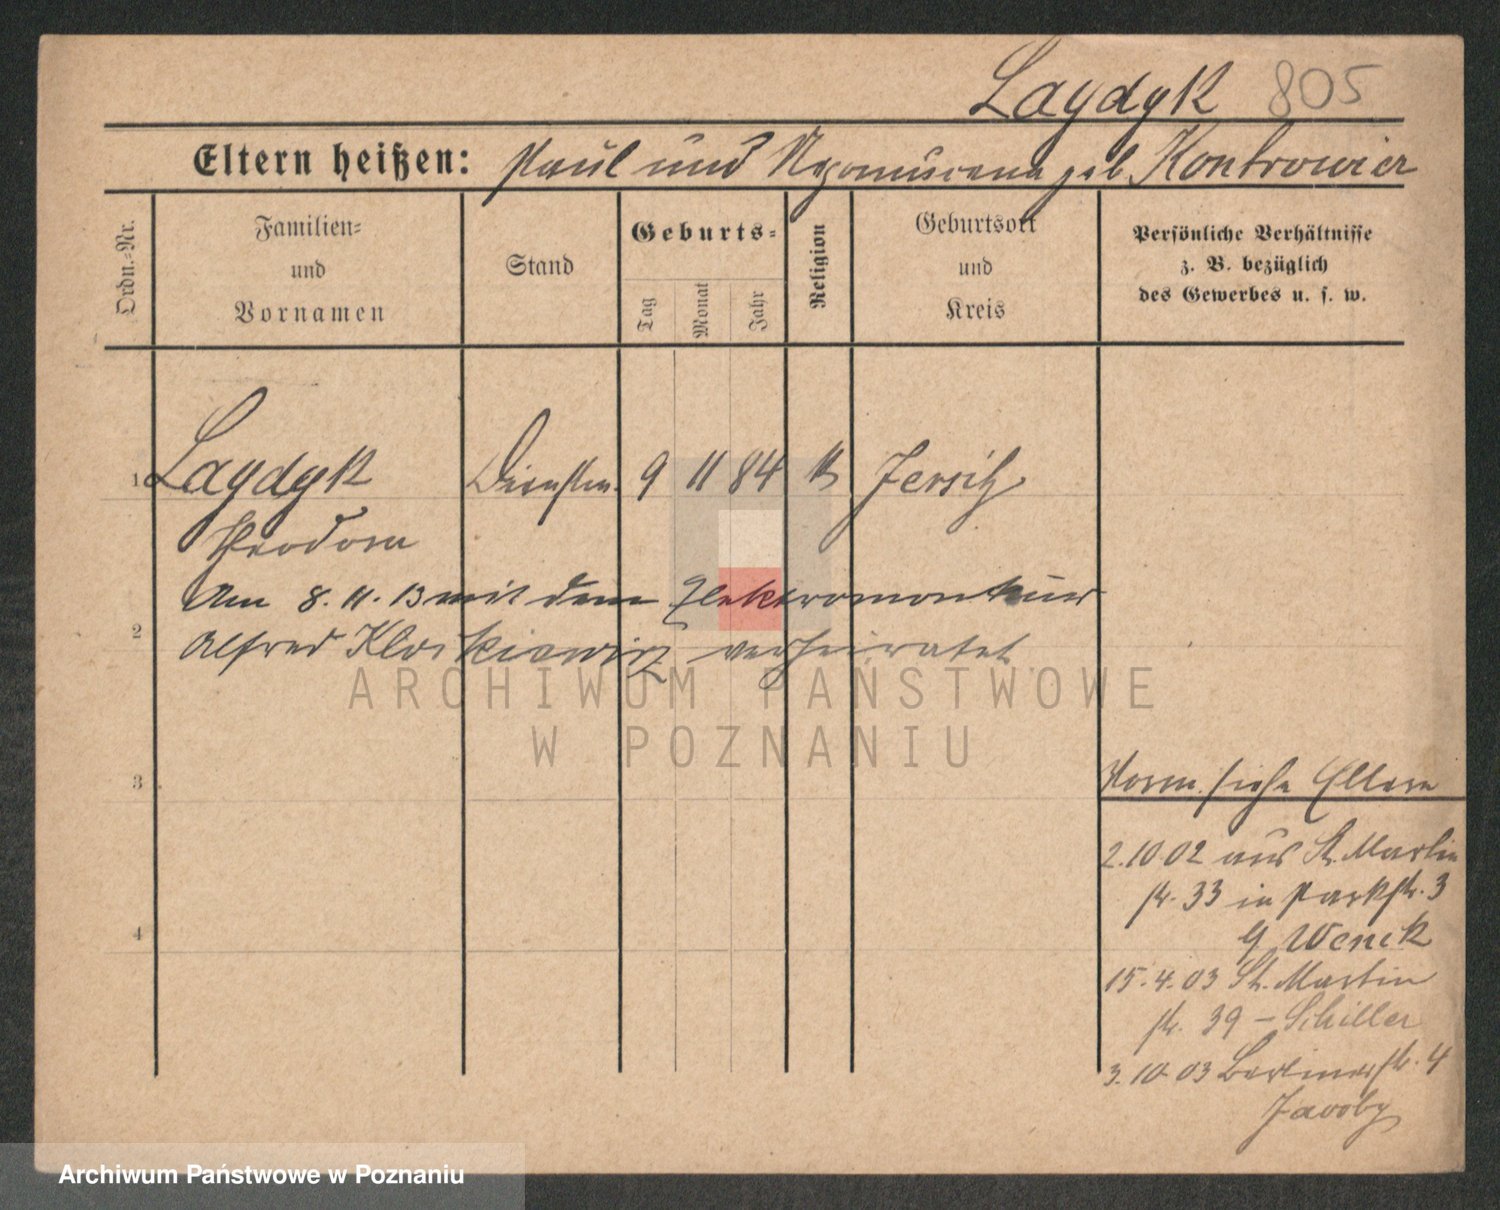 Laydyk 805
Eltern heißen: Paul und Nepomucena geb Kontrowier
Ordn.-Nr.
Familien-
und
Vornamen
Stand
Geburts-
Tag
Monat
Jahr
Religion
Geburtsort
und
Kreis
Persönliche Verhältnisse
z. B. bezüglich
des Gewerbes u. s. w.
1 Laydyk Dienstm. 9 11 84 k Jersitz
Theodora
Am 8.11.13 mit dem Elektromonteur
2
Alfred verheiratet
ARCHIWUM PAŃSTWOWE
W POZNANIU
3
Vorm. siehe Eltern
2.10.02 aus St. Martin
str. 33 in Parkstr. 3
4
Wenck
15.4.03 St. Martin
str. 39 – Schiller
3.10.03 Berlinerstr. 4
Jacoby
Archiwum Państwowe w Poznaniu